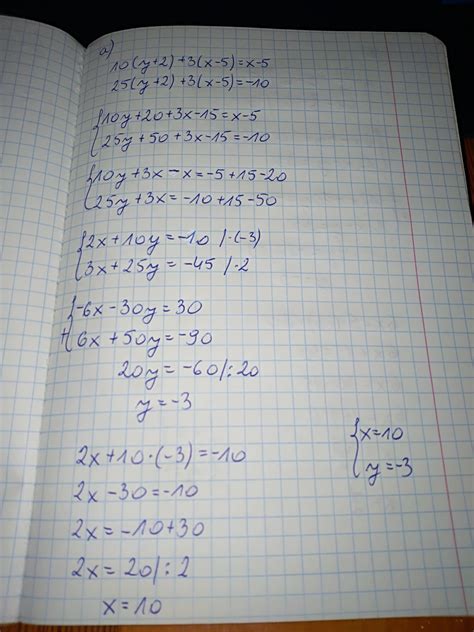 a)
10(y+2)+3(x-5)=x-5
25(y+2)+3(x-5)=-10
{10y+20+3x-15=x-5
25y+50+3x-15=-10
{10y+3x-x=-5+15-20
25y+3x=-10+15-50
{2x+10y=-10 /·(-3)
3x+25y=-45 /·2
+{-6x-30y=30
6x+50y=-90
20y=-60/:20
y=-3
2x+10·(-3)=-10
2x-30=-10
2x=-10+30
2x=20/:2
x=10
{x=10
y=-3